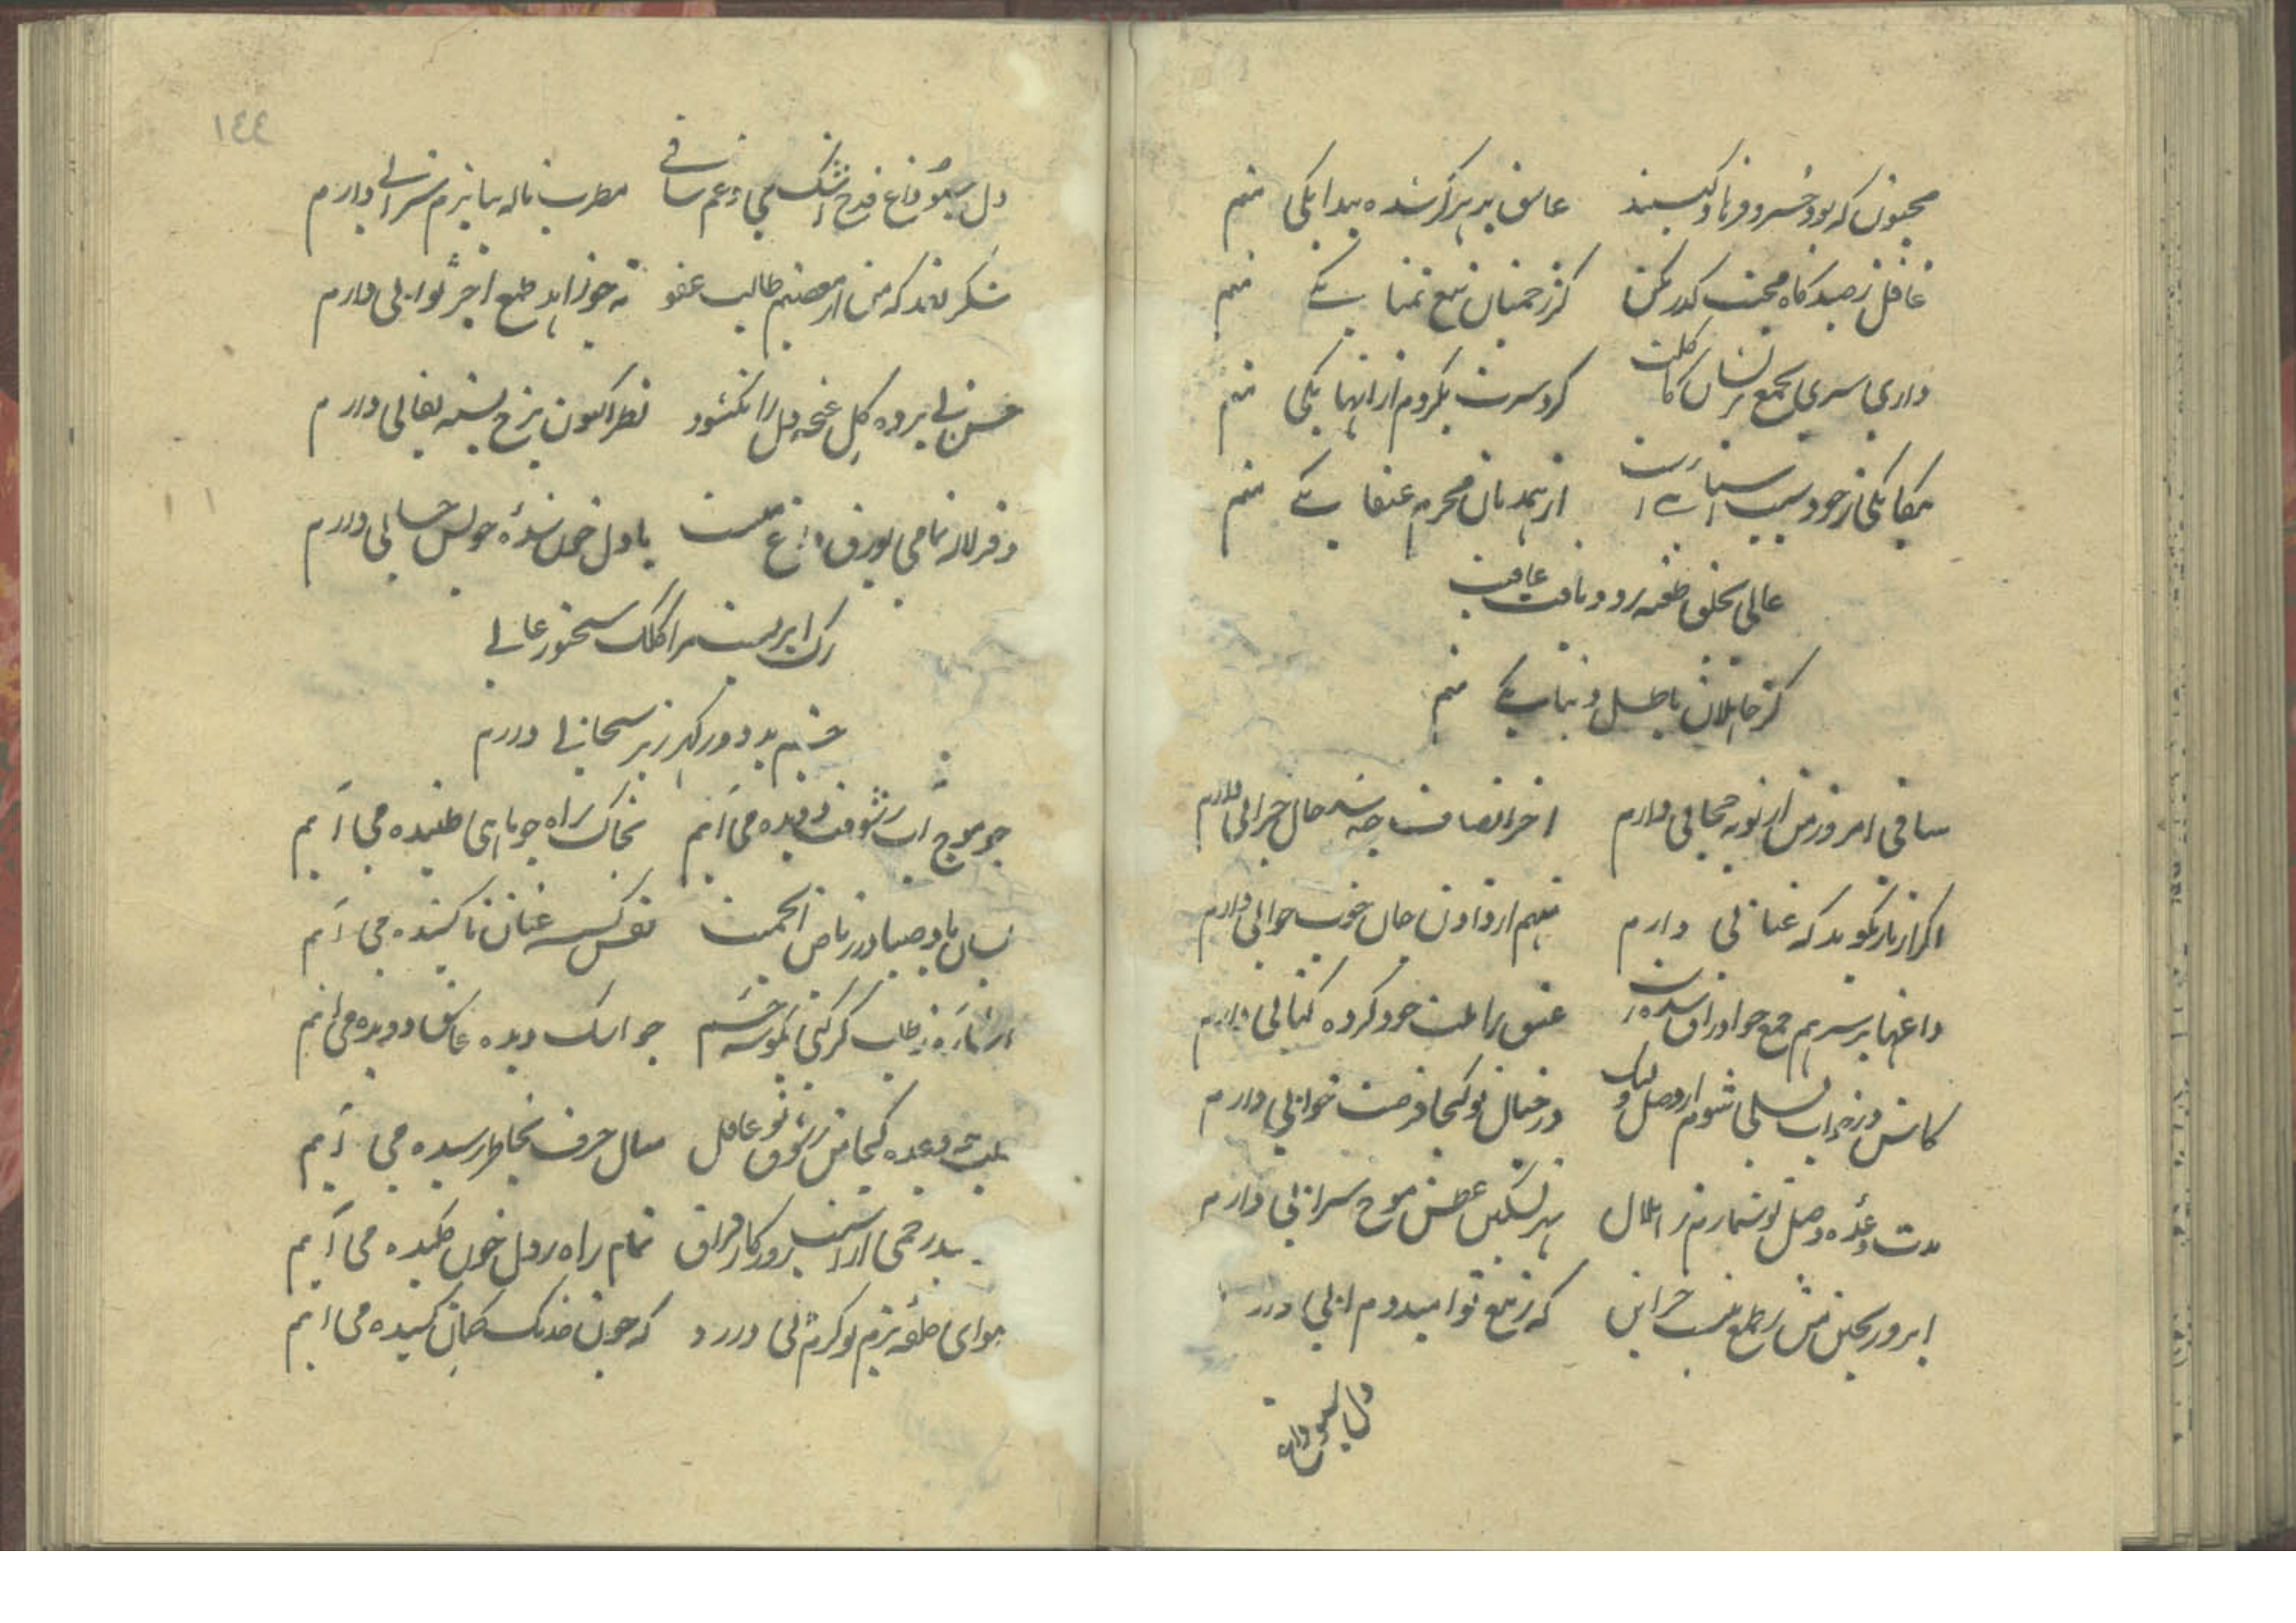 مجنون که بود خسرو و فرهاد کیستند عاشق بدهر گر شده پیدا یکی منم
غافل ز صیدگاه محبت گذر مکن کز زخمیان تیغ تمنا یکی منم
داری سری بجمع پریشان کاکلت گرد سرت بگردم از آنها یکی منم
از همدمان محرم عنقا یکی منم
عالی بخلق طعنه زد و یافت عاقبت
کز جاهلان باطل دنیا یکی منم
ساقی امروز من از توبه حجابی دارم آخر انصاف چه شد حال خرابی دارم
اگر از ناز بگوید که عتابی دارم منهم از دادن جان خوب جوابی دارم
داغها بر سر هم جمع چو اوراق شده است عشق را طبت خود کرده کتابی دارم
کاش در خواب تسلی شوم از وصل ولیک در خیال تو کجا فرصت خوابی دارم
مدت وعده وصل تو شمارم ز هلال بهر تسکین عطش موج سرابی دارم
که ز تیغ تو امید دم آبی دارد
دل سبو داغ
١٤٤
دل سبو داغ قدح اشک می و غم ساقی مطرب ناله بیا بزم شرابی دارم
شکر لله که من از معصیتم طالب عفو نه چو زاهد طمع اجر ثوابی دارم
حسن بی پرده گل غنچه دل را نگشود نظر اکنون برخ بسته نقابی دارم
دفتر لاله تمامی بورق داغ منست با دل خون شده خویش حسابی دارم
رگ ابریست مرا کلک سخنور عالی
چشم بد دور گهرریز سحابی دارم
چو موج آب ز شوقت دویده می آیم بخاک راه چو ماهی طپیده می آیم
بسان باد صبا در ریاض انجمنت نفس گسسته عنان ناکشیده می آیم
اشاره ز طلب گر کنی بگوشه چشم چو اشک دیده عاشق دویده می آیم
بلب چو وعده کجا من ز شوق تو غافل مثال حرف بخاطر رسیده می آیم
تمام راه ز دل خون چکیده می آیم
هوای حلقه بزم تو گر مرا نی دارد که چون خدنگ کمان کشیده می آیم